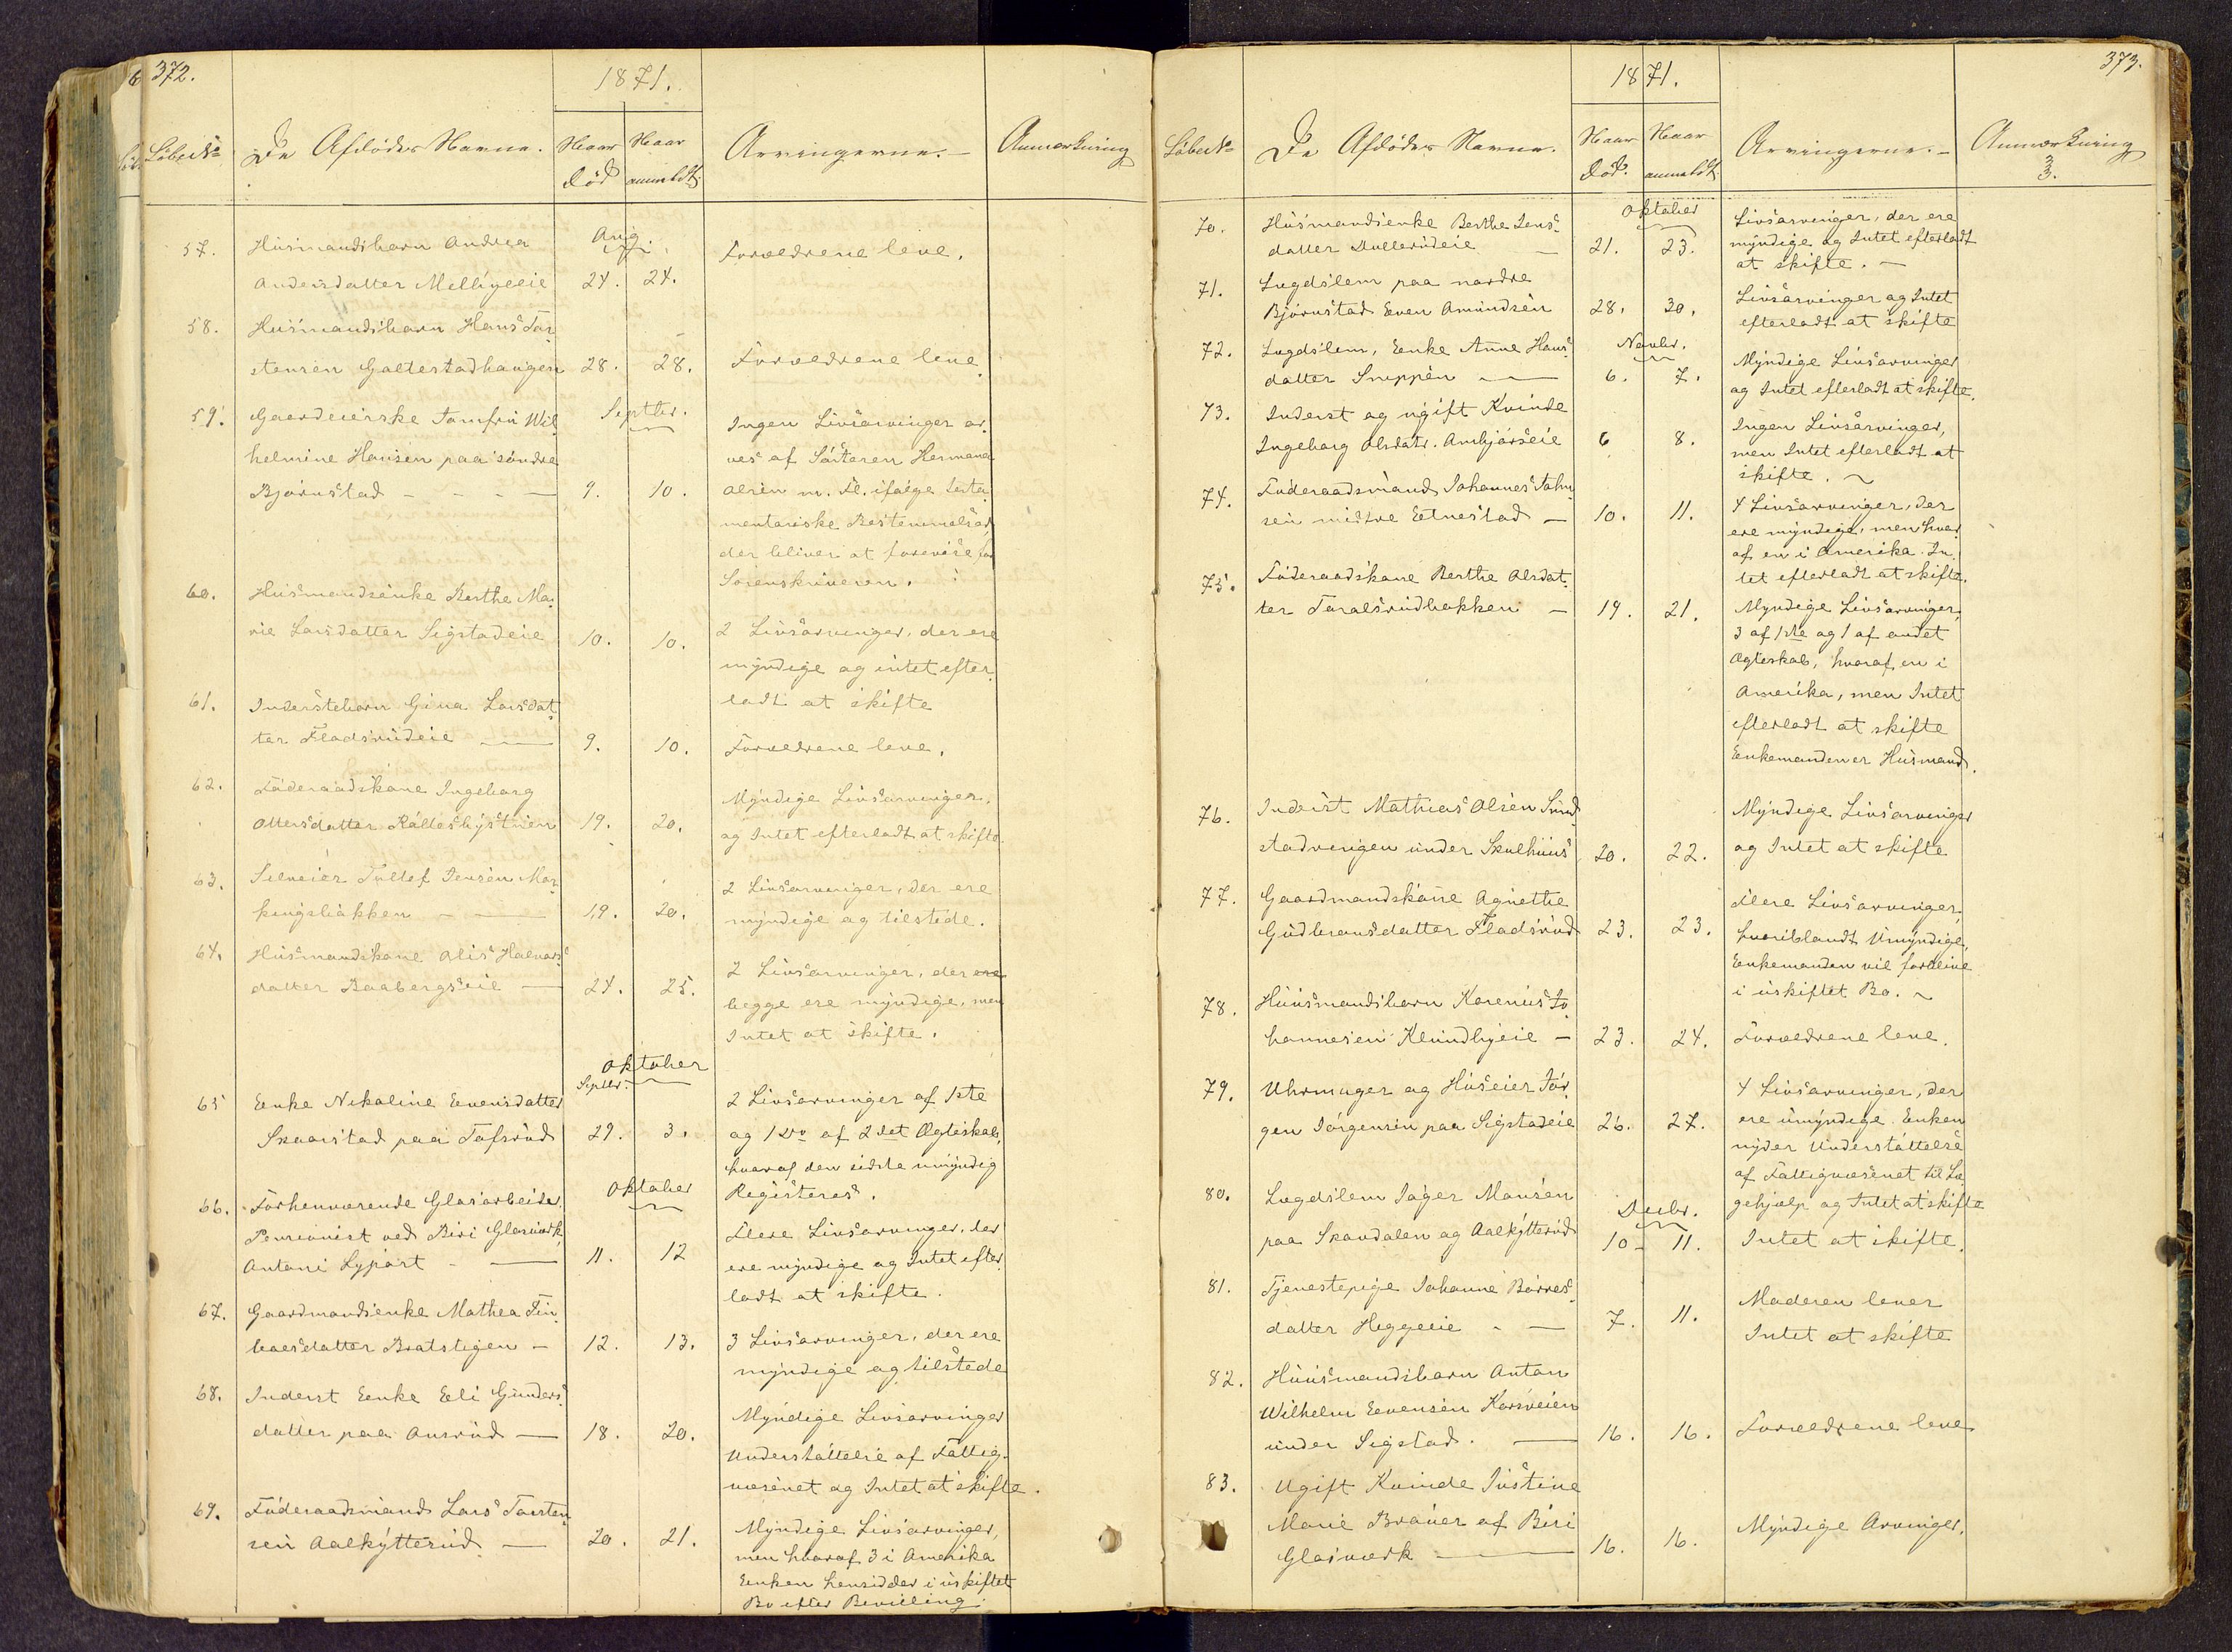 372.
1871.
LøbeNo
De Afdødes Navne.
Naar død
Naar anmeldt.
Arvingerne.
Anmærkning
57. Husmandsbarn Andrea
Aug
Forældrene leve.
Andersdatter Melbyeeie 24. 24.
58. Husmandsbarn Hans Tor-
stensen Galtestadhaugen 28. 28. Forældrene leve.
59. Gaardeierske Jomfru Wil-
Septbr.
Ingen Livsarvinger ar-
helmine Hansen paa søndre
ves af Søsteren Hermana
Bjørnstad - - - — 9. 10.
Olsen m. Fl. ifølge testa-
mentariske Bestemmelser,
der bliver at forevise for
Sorenskriveren.
60. Husmandsenke Berthe Ma-
rie Larsdatter Sigstadeie 10. 10.
2 Livsarvinger, der ere
myndige og intet efter-
ladt at skifte
61. Inderstebarn Gina Larsdat-
ter Fladsrudeie — 9. 10. Forældrene leve.
62. Føderaadskone Ingeborg
Myndige Livsarvinger,
Ottersdatter 19. 20.
og Intet efterladt at skifte
63. Selveier Tollef Jensen
2 Livsarvinger, der ere
19. 20.
myndige og tilstede.
64. Husmandskone Olis Halvors-
2 Livsarvinger, der ere
datter Baabergseie — 24. 25.
begge ere myndige, men
Intet at skifte.
Oktober
Septbr.
65 Eenke Nikoline Evensdatter
2 Livsarvinger af 1ste
Skaarstad paa Tofsrud 29. 3.
og 1 do af 2det Ægteskab,
hvoraf den sidste umyndig
Registeres.
Oktober
66. Forhenværende Glasarbeider,
Flere Livsarvinger, der
Pensionist ved Biri Glasværk,
ere myndige og Intet efter-
Antoni Lypart - — 11. 12
ladt at skifte.
67. Gaardmandsenke Mathea
Bratstigen — 12. 13.
3 Livsarvinger, der ere
myndige og tilstede
68. Inderst Eenke Eli Gunders-
Myndige Livsarvinger
datter paa Ausrud — 18. 20.
Understøttelse af Fattig-
væsenet og Intet at skifte.
69. Føderaadsmand Lars Torsten-
Myndige Livsarvinger,
sen Aalkytterud — 20. 21.
men hvoraf 3 i Amerika
Eenken hensidder i uskiftet
Bo efter Bevilling.
373.
1871.
LøbeNo
De Afdødes Navne.
Naar Død.
Naar anmeldt.
Arvingerne.
Anmærkning
3
3.
70. Husmandsenke Berthe Jens-
Oktober
Livsarvinger, der ere
datter Dullerudeie — 21. 23.
myndige og Intet efterladt
at skifte. —
71. Lægdslem paa nordre
Bjørnstad Even Amundsen 28. 30.
Livsarvinger og Intet
efterladt at skifte
72. Lægdslem, Eenke Anne Hans-
Novbr.
Myndige Livsarvinger
datter Snippen — 6. 7.
og Intet efterladt at skifte.
73. Inderst og ugift Kvinde
Ingen Livsarvinger,
Ingeborg Olsdatr. Arnbjørseie 6 8.
men Intet efterladt at
skifte.
74. Føderaadsmand Johannes John-
4 Livsarvinger, der
sen midtre Eetnestad — 10. 11.
ere myndige, men hvor-
af en i Amerika. In-
tet efterladt at skifte.
75. Føderaadskone Berthe Olsdat-
ter Toralsrudbakken — 19. 21.
Myndige Livsarvinger,
3 af 1ste og 1 af andet
Ægteskab, hvoraf en i
Amerika, men Intet
efterladt at skifte
Eenkemanden er Husmand.
76. Inderst Mathias Olsen Sund-
Myndige Livsarvinger
under Skulhuus 20. 22.
og Intet at skifte
77. Gaardmandskone Agnethe
Flere Livsarvinger,
Gudbransdatter Fladsrud 23. 23.
hvoriblandt Umyndige,
Eenkemanden vil forblive
i uskiftet Bo.
78. Huusmandsbarn Karenius Jo-
hannesen Klundbyeie — 23. 24. Forældrene leve.
79. Uhrmager og Huseier Jør-
4 Livsarvinger, der
gen Jørgensen paa Sigstadeie 26. 27.
ere umyndige. Enken
nyder Understøttelse
af Fattigvæsenet til Læ-
gehjælp og Intet at skifte
80. Lægdslem Jøger Monsen
Decbr.
paa Skaudalen og Aalkytterud 10- 11. Intet at skifte.
81. Tjenestepige Johanne Børres-
Moderen lever
datter Heggeeie - — 7. 11.
Intet at skifte
82. Huusmandsbarn Anton
Wilhelm Evensen Korsveien
under Sigstad. — 16. 16. Forældrene leve
83. Ugift Kvinde Justine
Marie Brauer af Biri
Glasværk — 16. 16.
Myndige Arvinger.